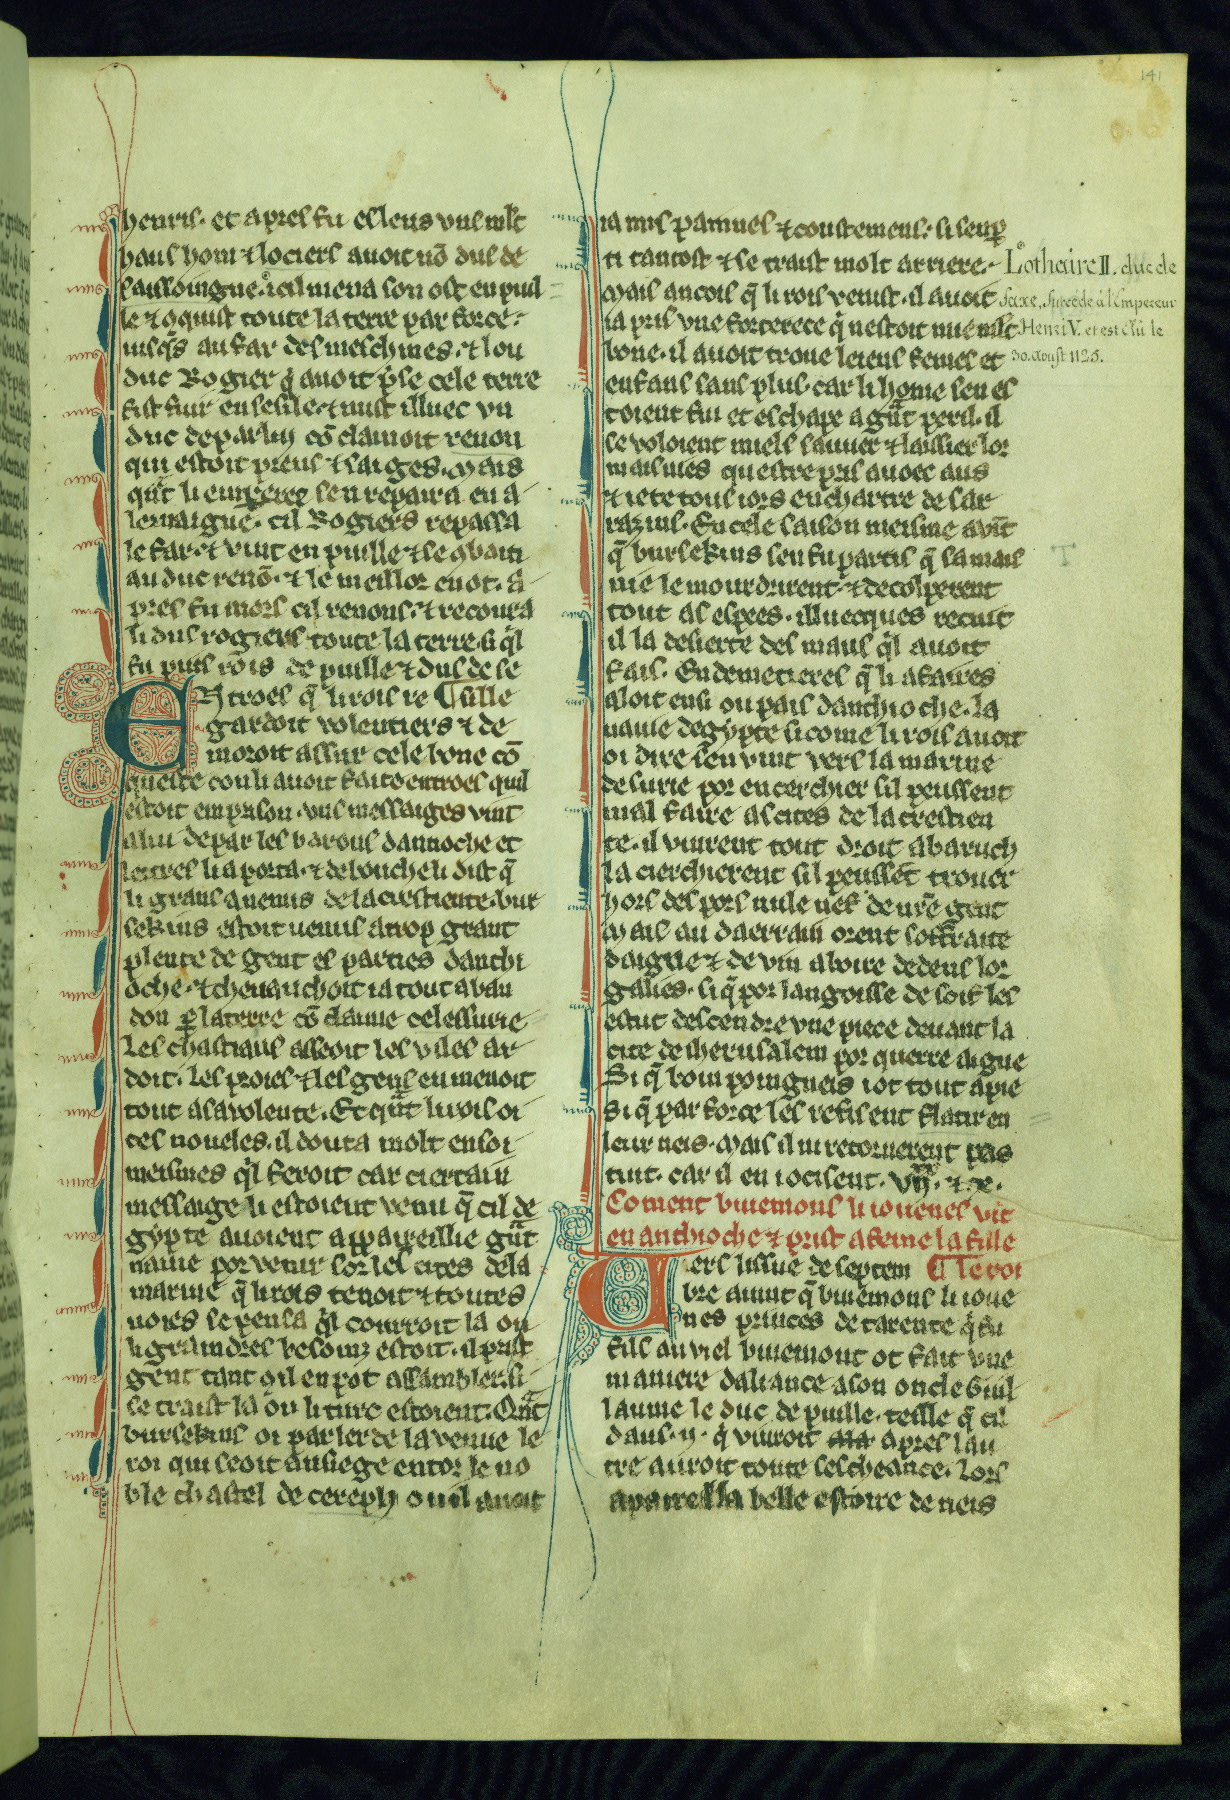 141
henris. et apres fu esleus uns mlt
haus hom ⁊ lociers auoit nō dus de
saissoingne. icil mena son ost en puil
le ⁊ ꝯquist toute la terre par force.
iusqͣs au far des meschines. ⁊ lou
duc Rogier q̄ auoit p̄se cele terre
fist fuir en sesile. ⁊ mist illuec vn
duc
qui estoit preus ⁊ saiges. Mais
qͣt li emꝑeres sen repaira en a
lemaigne. cil Rogiers repassa
le far. ⁊ vint en puille ⁊ se ꝯbati
au duc renō. ⁊ le meillor en ot. a
pres fu mors cil renons. ⁊ recoura
li dus rogiers toute la terre. si qͥl
fu puis rois de puille ⁊ dus de se
Entroes q̄ li rois re Cille
gardoit volentiers ⁊ de
moroit assur cele bone cō
queste con li auoit faite entroes quil
estoit em prison. uns messaiges vint
a lui de par les barons dantioche et
letres li aporta. ⁊ de bouche li dist q̄
li grans anemis de la crestiente. bur
sekins estoit uenus a trop grant
plente de gent es parties danthi
oche. ⁊ cheuauchoit ia tout a ban
don ꝑ la terre cō claime celessurie
Les chastiaus asseoit les viles ar
doit. les proies ⁊ les gens en menoit
tout a sa volente. Et qͣt li rois oi
ces noueles. il douta molt en soi
meismes qͥl feroit car ciertain
messaige li estoient venu q̄ cil de
gypte auoient appareillie gͣnt
nauie por venir sor les cites de la
marine q̄ li rois tenoit ⁊ toutes
uoies se pensa qͥl courroit la ou
li graindres besoinz estoit. il prist
gent tant qͥl en pot assambler. si
se traist la ou li turc estoient. Qͣnt
bursekins oi parler de la venue le
roi qui seoit a nsiege entor le no
ble chastel de cereph ou il auoit
ia mis pamuels ⁊ coustemens. si sen ꝑ
ti tantost ⁊ se traist molt arriere.
Mais ancois q̄ li rois venist. il auoit
ia pris vne forterece q̄ nestoit mie mlt
bone. il auoit troue leiens femes et
enfans sans plus. car li home sen es
toient fui et eschape a gͣt peril. il
se voloient miels sauuer ⁊ laissier lor
maisnies que estre pris auoec aus
⁊ iete tous iors en chartre de sar
razins. En cele saison meisme auīt
q̄ bursekins sen fu partis q̄ sa mais
nie le mourdrirent. ⁊ decolperent
tout as espees. illuecques recuit
il la desierte des maus qͥl auoit
fais. Endemetieres q̄ li afaires
aloit ensi ou pais danthioche. la
nauie degypte si come li rois auoit
oi dire sen vint vers la marine
de surie por encerchier sil peussent
mal faire as cites de la crestien
te. il vinrent tout droit a baruth
la cierchierent sil peussēt trouer
hors des pors nule nef de nr̄e gent
Mais au daerrain orent soffraite
daigue ⁊ de vin a boire dedens lor
galies. si q̄ por langoisse de soif les
estut descendre vne piece deuant la
cite de iherusalem por querre aigue
Si q̄ boin poingneis i ot tout a pie
si q̄ par force les refisent flatir en
leur neis. Mais il ni retornerent pas
tuit. car il en i ocisent. vjͯͯ. ⁊ x.
Coment buiemons li iouenes vit
en anthioche ⁊ prist a feme la fille
Vers lissue de septem ¶ le roi
bre auint q̄ buiemons li ioue
nes princes de tarente q̄ fu
fils au viel buiemont ot fait vne
maniere daliance a son oncle Guil
laume le duc de puille. teille q̄ cil
daus .ij. q̄ viuroit apres lau
tre auroit toute lescheance. Lors
apareilla belle estoire de neis
Lothaire II. duc de
Saxe, succède à l'Empereur
Henri V. et est élû le
30. Aoust 1125.